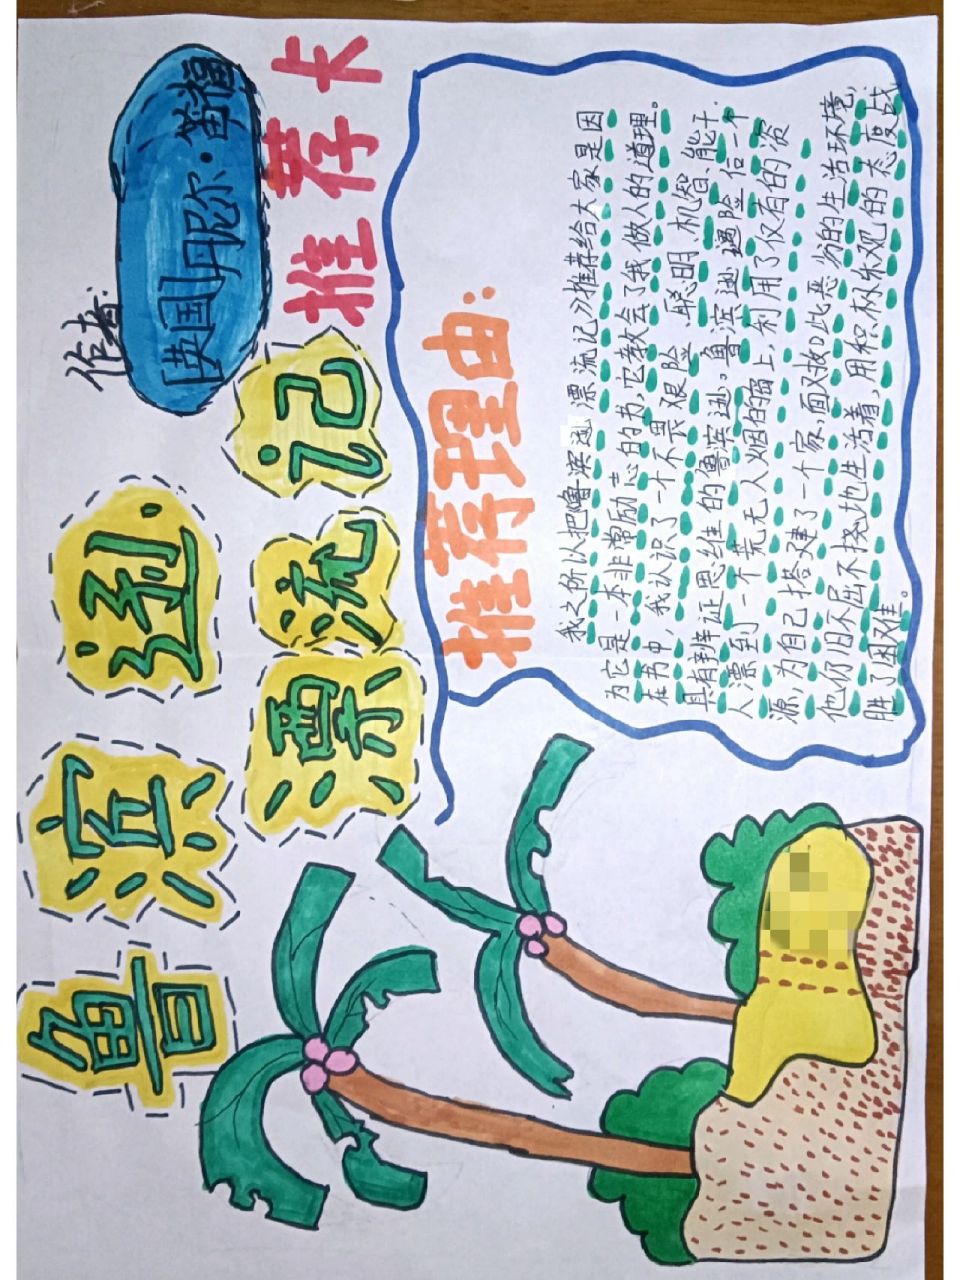 鲁滨逊
漂流记
推荐卡
作者:
英国丹尼尔·笛福
推荐理由:
我之所以把《鲁滨逊漂流记》推荐给大家是因
为它是一本非常励志的书,它教会了我做人的道理。
在书中,我认识了一个不畏艰险、聪明、机智、能干、
具有辨证思维的鲁滨逊。鲁滨逊遇险后一个
人漂到一个荒无人烟的岛上,利用了仅有的资
源,为自己搭建了一个家,面对如此恶劣的生活环境,
他仍旧不屈不挠地生活着,用积极乐观的态度战
胜了困难。